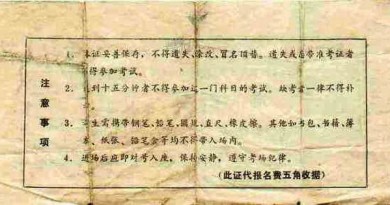 注意事项
1. 本证妥善保存，不得遗失、涂改、冒名顶替。遗失或忘带准考证者
不得参加考试。
2. 迟到十五分钟者不得参加这一门科目的考试。缺考者一律不得补
3. 考生需携带钢笔、铅笔、圆规、直尺、橡皮擦。其他如书包、书籍、簿
本、纸张、铅笔盒等均不得带入场内。
4. 进场后应即对号入座，保持安静，遵守考场纪律。
（此证代报名费五角收据）